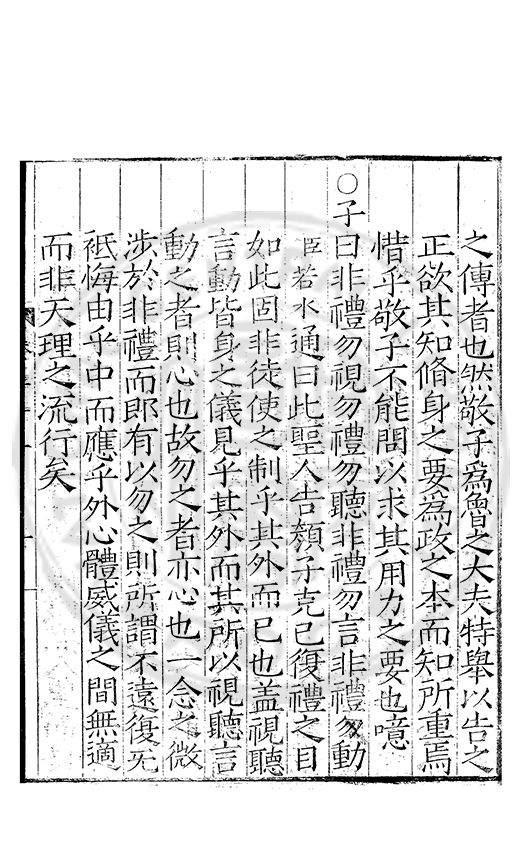 之傳者也然敬子爲魯之大夫特舉以告之
正欲其知脩身之要爲政之本而知所重焉
惜乎敬子不能問以求其用力之要也噫
○子曰非禮勿視勿禮勿聽非禮勿言非禮勿動
臣若水通曰此聖人告顏子克己復禮之目
如此固非徒使之制乎其外而已也盖視聽
言動皆身之儀見乎其外而其所以視聽言
動之者則心也故勿之者亦心也一念之微
涉於非禮而即有以勿之則所謂不遠復无
祗悔由乎中而應乎外心體威儀之間無適
而非天理之流行矣